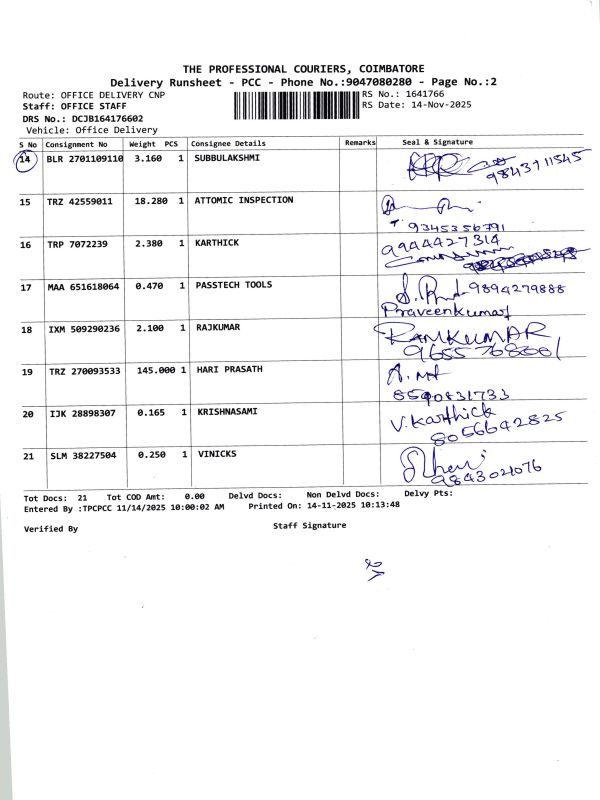 THE PROFESSIONAL COURIERS, COIMBATORE
Delivery Runsheet - PCC - Phone No.:9047080280 - Page No.:2
Route: OFFICE DELIVERY CNP RS No.: 1641766
Staff: OFFICE STAFF RS Date: 14-Nov-2025
DRS No.: DCJB164176602
Vehicle: Office Delivery
S No Consignment No Weight PCS Consignee Details Remarks Seal & Signature
14 BLR 2701109110 3.160 1 SUBBULAKSHMI
9843911545
15 TRZ 42559011 18.280 1 ATTOMIC INSPECTION
9345356791
16 TRP 7072239 2.380 1 KARTHICK 9944427314
17 MAA 651618064 0.470 1 PASSTECH TOOLS 9894279888
Praveenkumar
18 IXM 509290236 2.100 1 RAJKUMAR RAMKUMAR
19 TRZ 270093533 145.000 1 HARI PRASATH
8590831733
20 IJK 28898307 0.165 1 KRISHNASAMI V. Karthick
8056642825
21 SLM 38227504 0.250 1 VINICKS
9843021076
Tot Docs: 21 Tot COD Amt: 0.00 Delvd Docs: Non Delvd Docs: Delvy Pts:
Entered By :TPCPCC 11/14/2025 10:00:02 AM Printed On: 14-11-2025 10:13:48
Verified By Staff Signature